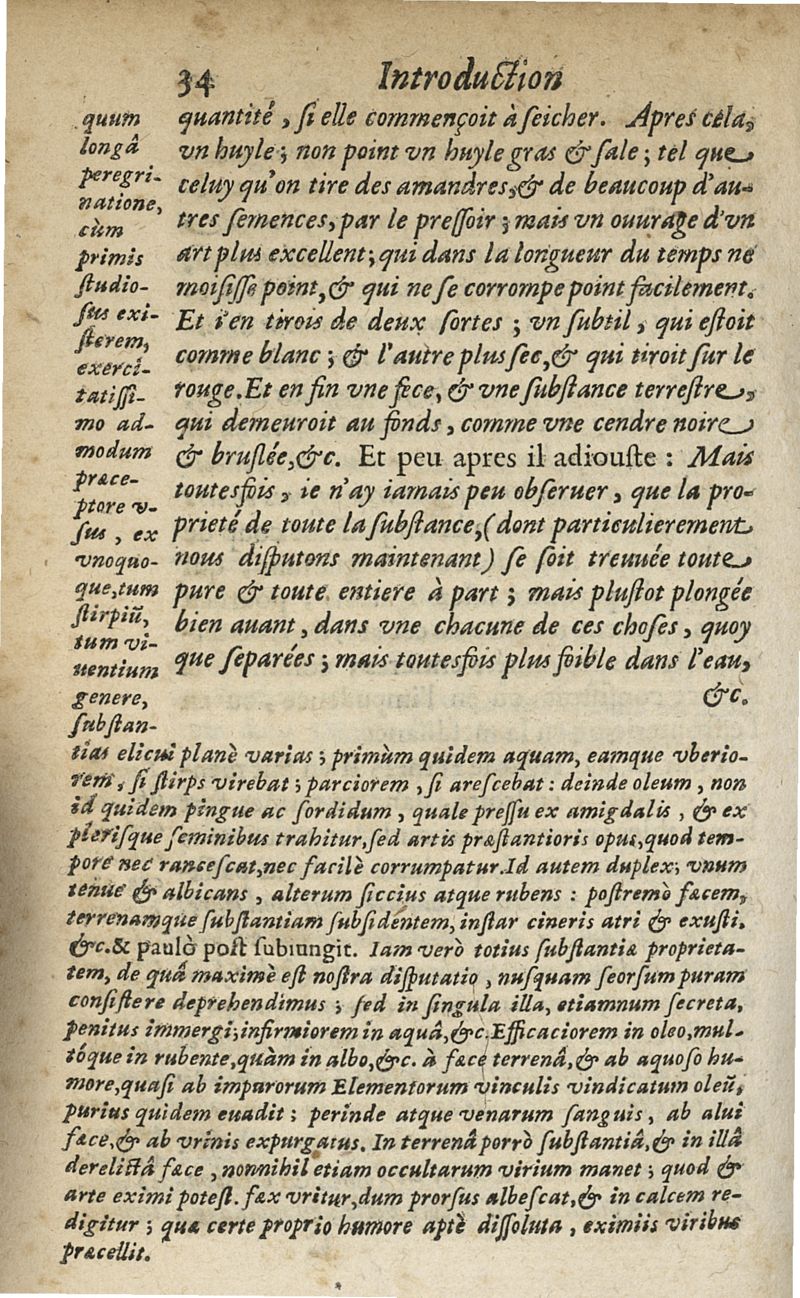 34 Introduction
quantité, si elle commençoit à seicher. Apres cela,
vn huyle; non point vn huyle gras & sale; tel que
celuy qu'on tire des amandres, & de beaucoup d'au-
tres semences, par le pressoir; mais vn ouurage d'vn
art plus excellent; qui dans la longueur du temps ne
moisisse point, & qui ne se corrompe point facilement.
Et i'en tirois de deux sortes; vn subtil, qui estoit
comme blanc; & l'autre plus sec, & qui tiroit sur le
rouge. Et en fin vne fece, & vne substance terrestre,
qui demeuroit au fonds, comme vne cendre noire
& bruslée, &c. Et peu apres il adiouste : Mais
toutesfois, ie n'ay iamais peu obseruer, que la pro-
prieté de toute la substance, (dont particulierement
nous disputons maintenant) se soit treuuée toute
pure & toute entiere à part; mais plustot plongée
bien auant, dans vne chacune de ces choses, quoy
que separées; mais toutesfois plus foible dans l'eau,
&c.
quum
longâ
peregri-
natione,
cùm
primis
studio-
sus exi-
sterem,
exerci-
tatissi-
mo ad-
modum
præce-
ptore v-
sus, ex
vnoquo-
que, tum
stirpiũ,
tum vi-
uentium
genere,
substan-
tias elicui planè varias; primùm quidem aquam, eamque vberio-
rem, si stirps virebat; parciorem, si arescebat : deinde oleum, non
id quidem pingue ac sordidum, quale pressu ex amigdalis, & ex
plerisque seminibus trahitur, sed artis præstantioris opus, quod tem-
pore nec rancescat, nec facilè corrumpatur. Id autem duplex; vnum
tenue & albicans, alterum siccius atque rubens : postremò fæcem,
terrenamque substantiam subsidentem, instar cineris atri & exusti.
&c. & paulò post subiungit. Iam verò totius substantiæ proprieta-
tem, de quâ maximè est nostra disputatio, nusquam seorsum puram
consistere deprehendimus; sed in singula illa, etiamnum secreta,
penitus immergi; infirmiorem in aquâ, &c. Efficaciorem in oleo, mul-
tóque in rubente, quàm in albo, &c. à fæce terrenâ, & ab aquoso hu-
more, quasi ab impurorum Elementorum vinculis vindicatum oleũ,
purius quidem euadit; perinde atque venarum sanguis, ab alui
fæce, & ab vrinis expurgatus. In terrenâ porrò substantiâ, & in illâ
derelictâ fæce, nonnihil etiam occultarum virium manet; quod &
arte eximi potest. fæx vritur, dum prorsus albescat, & in calcem re-
digitur; quæ certe proprio humore aptè dissoluta, eximiis viribus
præcellit.